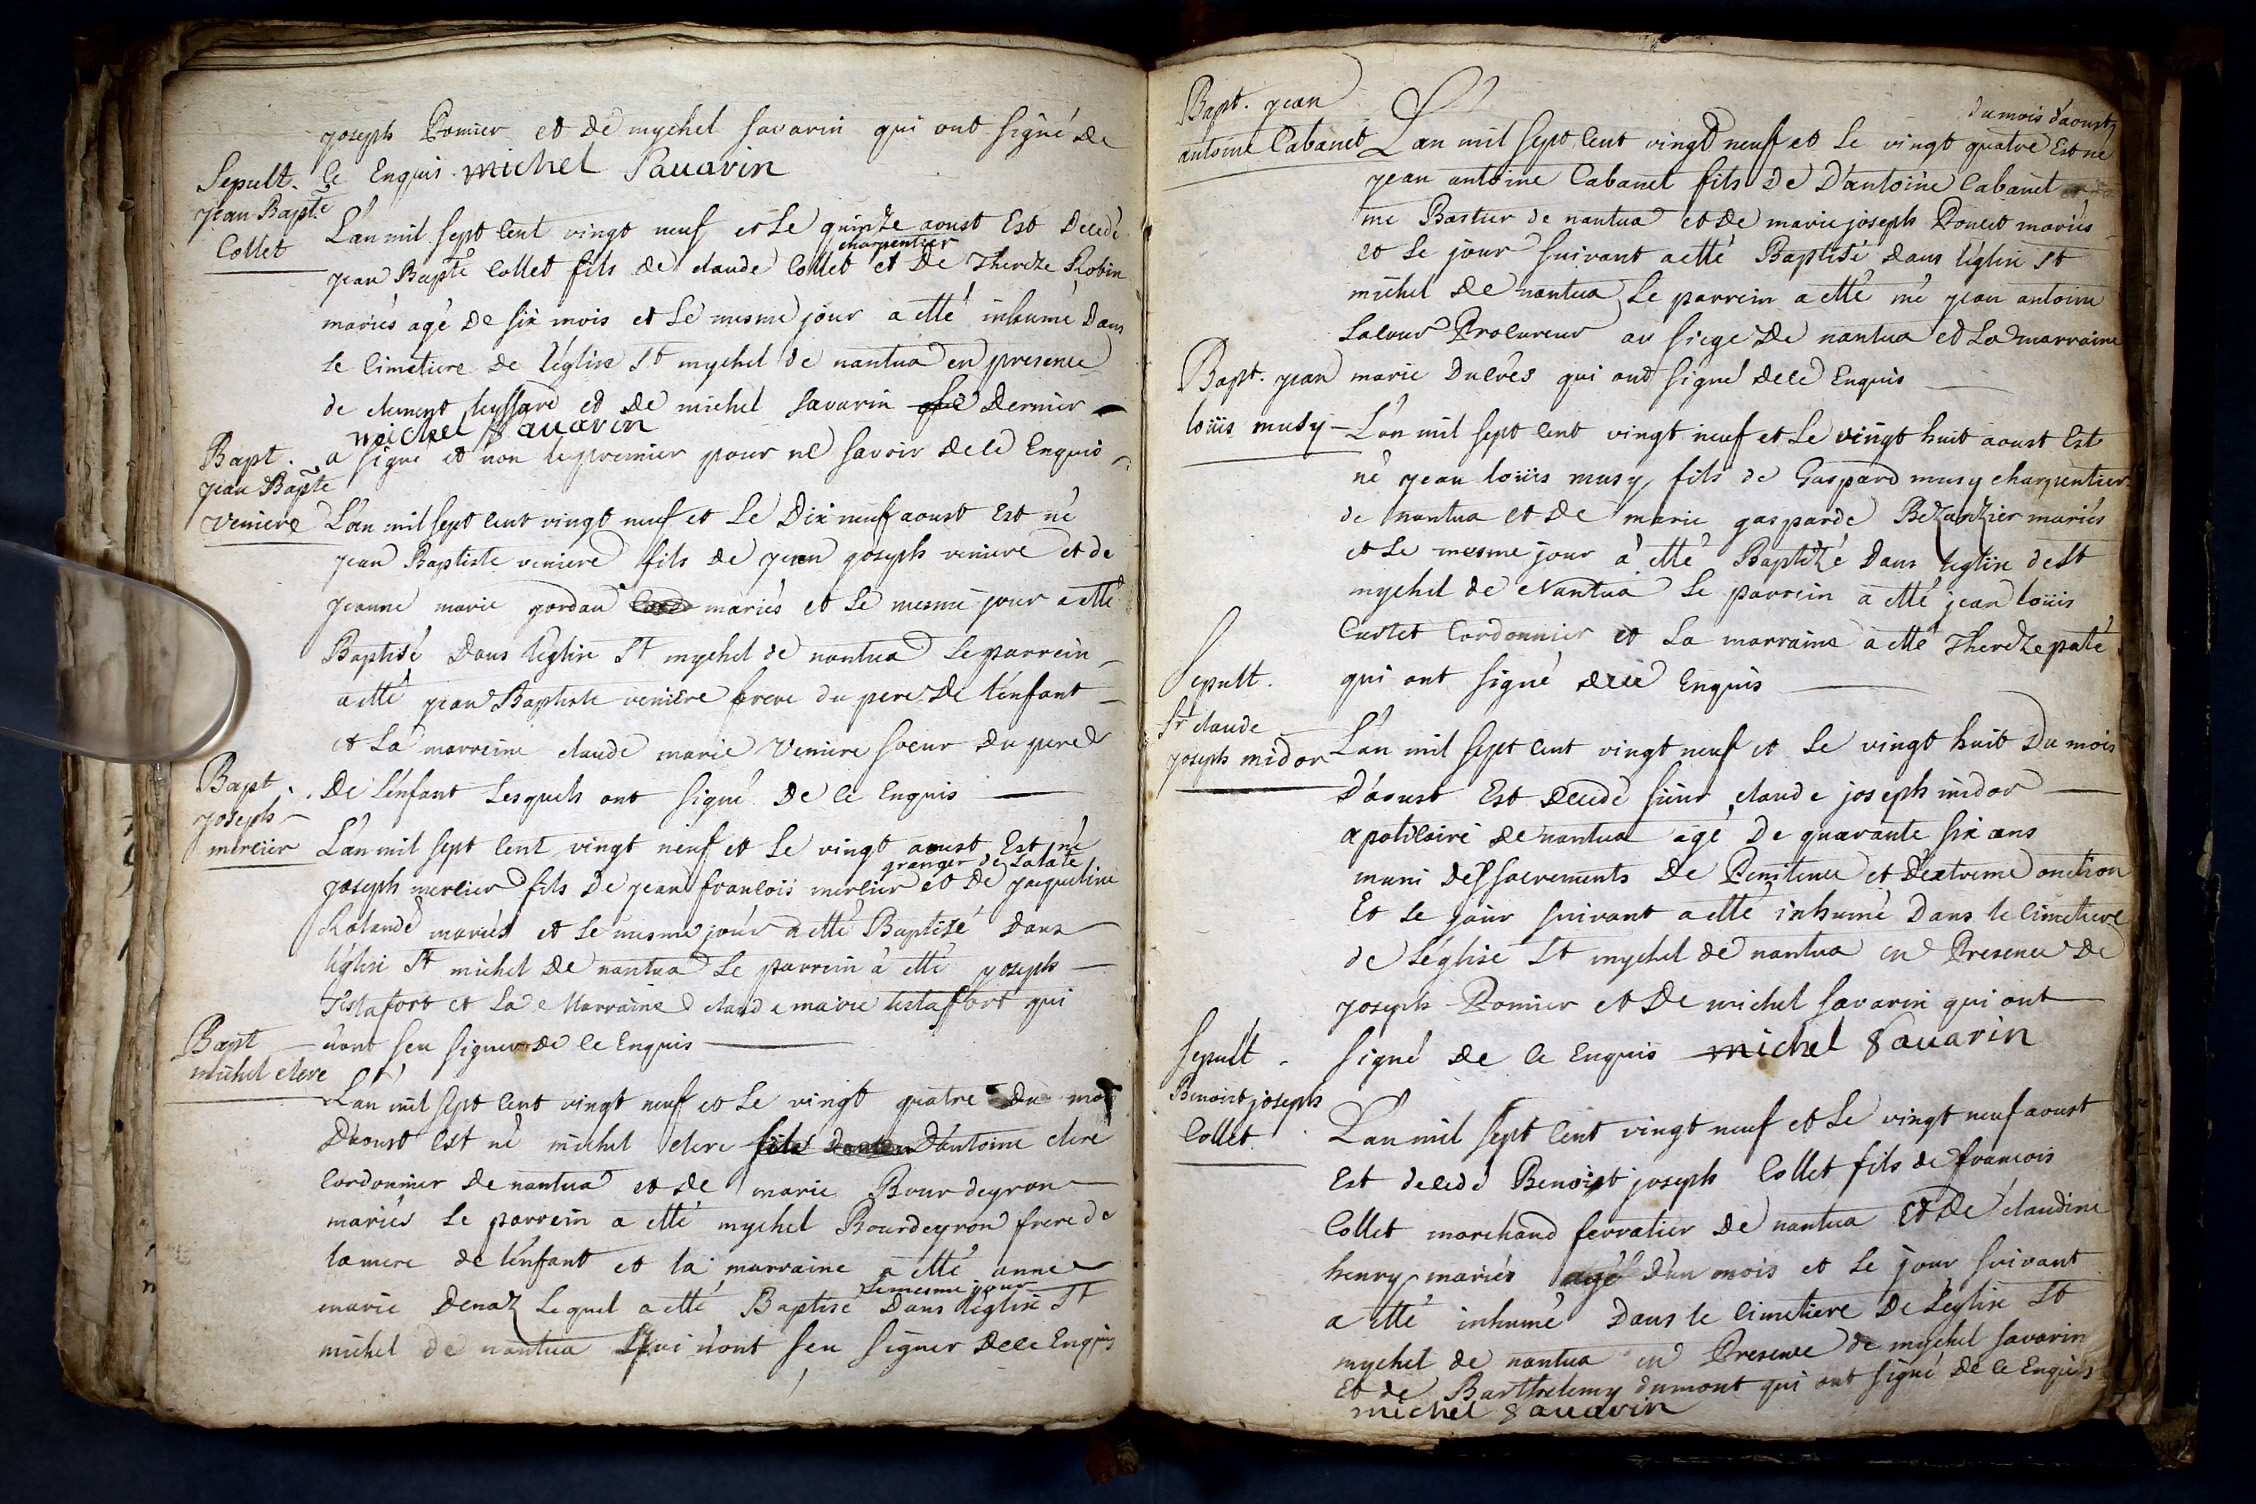 joseph Pomier et de mychel savarin qui ont signé de
Sepult. ce Enquis. michel Sauarin
jean Bapte
Collet
L'an mil sept cent vingt neuf et le quinze aoust Est Decedé
charpentier
jean Bapte Collet fils de claude Collet et De Thereze Robin
mariés agé De six mois et Le mesme jour a etté inhumé Dans
Le Cimetiere De l'église St mychel de nantua en presence
de clement leyssard et De michel savarin Dernier
michel Sauarin
a signé et non le premier pour ne savoir dece Enquis
Bapt.
jean Bapte
Veniere
L'an mil sept cent vingt neuf et Le Dix neuf aoust Est né
jean Baptiste veniere fils de jean joseph veniere et de
jeanne marie jordan mariés et Le mesme jour a etté
Baptisé Dans l'eglise St mychel de nantua Le parrein
a etté jean Baptiste veniere frere du pere De l'enfant
et La marreine claude marie Veniere soeur Du pere
De L'enfant Lesquels ont signé De ce Enquis
Bapt.
joseph
mercier
L'an mil sept cent vingt neuf et Le vingt aoust Est né
granger de Latate
joseph mercier fils De jean francois mercier et De jacqueline
Rolande mariés et Le mesme jour a etté Baptisé Dans
l'église St michel De nantua Le parrein à etté joseph
Testafort et La Marraine claude marie testaffort qui
n'ont seu signer De ce Enquis
Bapt
michel clere
L'an mil sept cent vingt neuf et Le vingt quatre Du mois
D'aoust est né michel clere fils D'antoine clere
Cordonnier De nantua et De marie Bourdeyron
mariés Le parrein a etté mychel Bourdeyron frere de
la mere de l'enfant et la marraine a etté anne
Le mesme jour
marie Denaz Lequel a etté Baptisé Dans l'eglise St
michel de nantua qui n'ont seu signer Dece Enquis
Bapt. jean
antoine Cabanet
du mois d'aoust
L'an mil sept cent vingt neuf et Le vingt quatre Est né
jean antoine Cabanet fils De D'antoine Cabanet
me Bastier de nantua et De marie joseph Poncet mariés
et Le jour suivant a etté Baptisé Dans l'église St
michel De nantua Le parrein a etté me jean antoine
Lacour Procureur au siege De nantua et La marraine
marie Dulrés qui ont signé Dece Enquis
Bapt. jean
loüis musy
L'an mil sept cent vingt neuf et Le vingt huit aoust Est
né jean loüis musy fils de Gaspard musy charpentier
de nantua et De marie gasparde Bezanzier mariés
et Le mesme jour à etté Baptizé Dans l'eglise de St
mychel de Nantua Le parrein a etté jean loüis
Curtet Cordonnier et La marraine a etté Thereze paté
qui ont signé dece Enquis
Sepult.
Sr claude
joseph midor
L'an mil sept cent vingt neuf et Le vingt huit Du mois
D'aoust Est Decedé sieur claude joseph midor
apoticaire De nantua agé De quarante six ans
muni Des sacrements De Penitence et D'extreme onction
Et Le jour suivant a etté inhumé Dans le Cimetiere
de L'église St mychel de nantua en Presence De
joseph Pomier et De michel savarin qui ont
signé De ce Enquis michel Sauarin
Sepult.
Benoist joseph
Collet.
L'an mil sept cent vingt neuf et Le vingt neuf aoust
Est decedé Benoist joseph Collet fils de francois
Collet marchand ferratier De nantua Et De claudine
henry mariés agé D'un mois et Le jour suivant
a etté inhumé Dans le Cimetiere De L'eglise St
mychel de nantua en Presence de mychel savarin
Et de Barthelemy dumont qui ont signé De ce Enquis
michel Sauarin